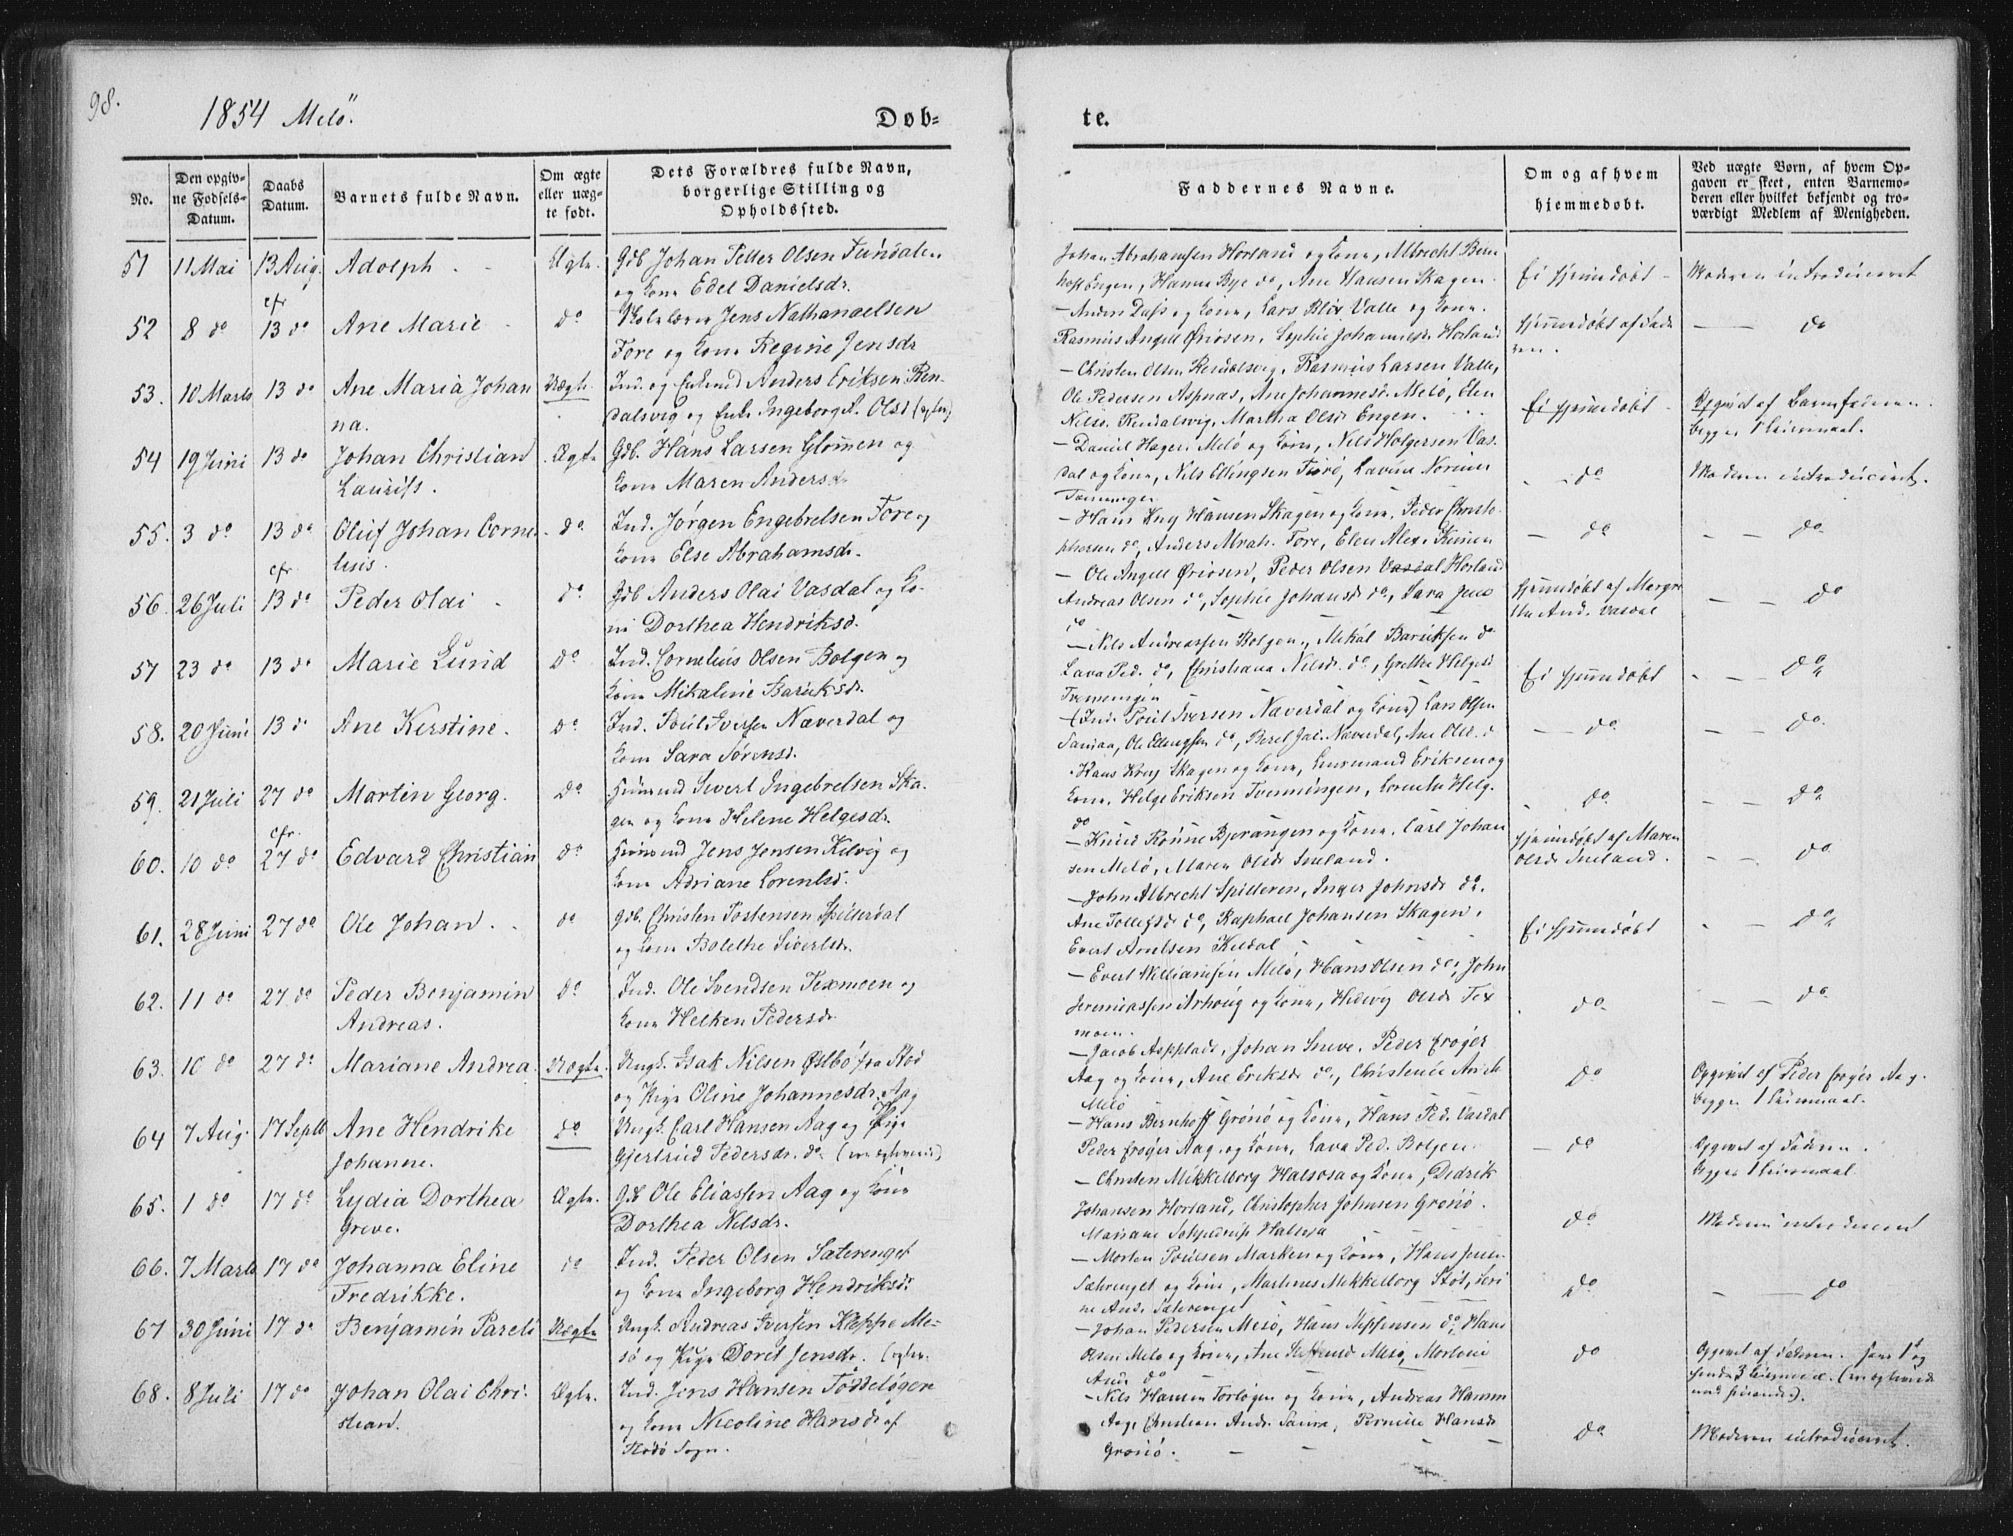 98.
1854 Melö.
Døb-
te.
No.
Den opgiv-
ne Fødsels-
Datum.
Daabs
Datum.
Barnets fulde Navn.
Om ægte
eller uæg-
te født.
Dets Forældres fulde Navn,
borgerlige Stilling og
Opholdssted.
Faddernes Navne.
Om og af hvem
hjemmedøbt.
Ved uægte Børn, af hvem Op-
gaven er skeet, enten Barnemo-
deren eller hvilket bekjendt og tro-
værdigt Medlem af Menigheden.
51 11 Mai 13 Aug. Adolph. Ægte. Gdb Johan Petter Olsen
og Kone Edel Danielsdr.
Johan Abrahamsen Horland og Kone, Albrecht Bern
hoff Engen, Hanna Bye do, Ane Hansen Skagen.
Ei hjemdøbt Moderen introduceret
52 8 do cfr 13 do Ane Marie do Skolelærer Jens Nathanaelsen
Fore og Kone Regine Jensdr
Anders Dass og Kone, Lars Blix Valle og Kone.
Rasmus Angell Øriosen, Sophie Johannesdr Horland
hjemdøbt af Fade
ren. do
53. 10 Marts 13 do Ane Maria Johan
na. Uægte. Ind. og Enkemd Anders Eriksen Ren-
dalsvig og Enke Ingeborg A. Olsd
Christen Olsen Rendalsvig, Rasmus Larsen Valle,
Ole Pedersen Aspnæs, Ane Johannesdr. Melö, Elen
Nilsd. Rendalsvig, Martha Olsdr Engen.
Ei hjemdøbt Opgivet af Barnefaderen.
begges 1 Leiermaal.
54 19 Juni 13 do Johan Christian
Lauriss. Ægte Gdb. Hans Larsen Glomen og
Kone Maren Andersdr
Daniel Hagen Melö og Kone, Nils Holgersen Vas-
dal og Kone, Nils Ellingsen
do Moderen introduceret.
55. 3 do 13 do Oluf Johan Corne-
lius. do Ind. Jørgen Engebretsen Fore og
Kone Else Abrahamsdr.
Hans Krey Hansen Skagen og Kone, Peder Christo
phersen do, Anders Abrah. Fore, Elen Alex.
do do
56. 26 Juli cfr 13 do Peder Olai do Gdb Anders Olai Vasdal og Ko-
ne Dorthea Hendriksd.
Ole Angell Øriosen, Peder Olsen Vasdal Horland
Andreas Olsen do, Sophie Johansd do, Sara Jens
do
hjemdøbt af Margre
the And. Vasdal do
57 23 do 13 do Marie Lund do Ind. Cornelius Olsen Bolgen og
Kone Mikaline Bariksdr.
Nils Andreassen Bolgen, Mikal Bariksen do
Lava Ped. do, Christiana Nilsdr. do, Grethe Helgesd
Ei hjemdøbt do
58. 20 Juni 13 do Ane Kerstine. do Ind. Poul Iversen Næverdal og
Kone Sara Sørensd.
(Ind. Poul Iversen Næverdal og Kone) Lars Olsen
Sandaa, Ole Ellingsen do, Beret Jac. Næverdal, Ane Olsd. d
do do
59. 21 Juli 27 do Martin Georg. do Huusmd Sivert Ingebretsen Ska-
gen og Kone Helene Helgesdr.
Hans Krey Skagen og Kone, Erikson og
Kone, Helge Eriksen Tvenningen, Lorentse Helg.
do
do do
60. 10 do cfr. 27 do Edvard Christian do Huusmd Jens Jensen Kilvig og
Kone Adriane Lorentsd.
Knud Rønne Bjerangen og Kone, Carl Johan
sen Melö, Maren Olsdr
hjemdøbt af Maren
Olsdr do
61. 28 Juni 27 do Ole Johan. do Gdb. Christen Tostensen Spilderdal
og Kone Bolethe Sivertsdr.
John Albrecht Spilderen, Inger Johnsdr do,
Ane Tollefsdr do, Raphael Johansen Skagen,
Evert Arntsen Kildal
Ei hjemdøbt do
62. 11 do 27 do Peder Benjamin
Andreas. do Ind. Ole Svendsen Texmoen og
Kone Helken Pedersdr
Evert Willumsen Melö, Hans Olsen do, John
Jeremiassen Arhoug og Kone, Hedevig Olsdr Tex
moen.
do do
63. 10 do 27 do Mariane Andrea. Uægte. Ungk. Isak Nilsen Østbö fra Rød
og Pige Oline Johannesdr. Aag
Jacob Johan Sneve, Peder Crøger
Aag og Kone, Ane Eriksdr do, Christence
Melö
do Opgivet af Peder Crøger Aag.
begges 1 Leiermaal.
64 7 Aug. 17 Septb Ane Hendrike
Johanne. do Ungk. Carl Hansen Aag og Pige
Gjertrud Pedersdr. do
Hans Bernhoff Grønö og Kone, Hans Ped. Vasdal
Peder Crøger Aag og Kone, Lava Ped. Bolgen
do Opgivet af Faderen.
begges 1 Leiermaal.
65. 1 do 17 do Lydia Dorthea
Greve. Ægte. Gdb Ole Eliassen Aag og Kone
Dorthea Nilsdr.
Christen Mikkelborg Halsosa og Kone, Didrik
Johansen Horland, Christopher Johnsen Grønö.
Mariane Halsosa
do Moderen introduceret
66. 7 Marts 17 do Johanna Eline
Fredrikke. do Ind. Peder Olsen Sæterenget
og Kone Ingeborg Hendriksdr
Morten Poulsen Marken og Kone, Hans Jens
Sætrenget og Kone, Martinus Mikkelborg Støt, Seri
ne Andr. Sætrenget
do do
67 30 Juni 17 do Benjamin Pareli Uægte Ungk. Andreas Iversen Kleppe Me-
sö og Pige Doret Jensdr.
Johan Pedersen Mesö, Hans Jeppesen do, Hans
Olsen Melö og Kone, Ane Mesö, Mortine
do
do Opgivet af Faderen. hans 1t og
hendes 3 Leiermaal.
68. 8 Juli 17 do Johan Olai Chri-
stian. Ægte. Ind. Jens Hansen
og Kone Nicoline Hansdr af
Rødö Sogn.
Nils Hansen og Kone, Andreas Hamm
Aag, Christian Andr. Saura, Pernille Hansdr
Grønö.
do Moderen introduceret.